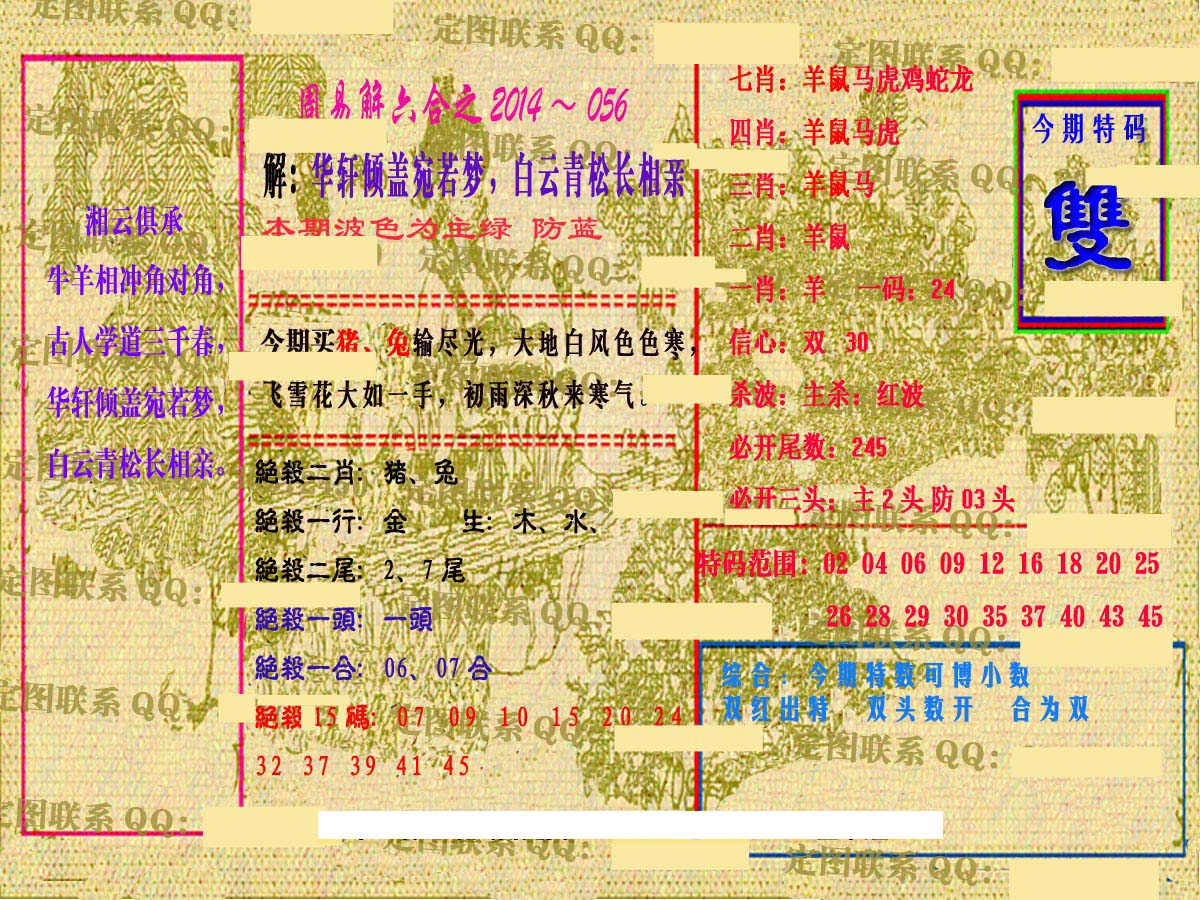 周易解六合之 2014～056
湘云俱承
牛羊相冲角对角，
古人学道三千春，
华轩倾盖宛若梦，
白云青松长相亲。
解：华轩倾盖宛若梦，白云青松长相亲
本期波色为主绿 防蓝
今期买猪、兔输尽光，大地白风色色寒，
飞雪花大如一手，初雨深秋来寒气
絕殺二肖：猪、兔
絕殺一行：金 生：木、水、
絕殺二尾：2、7尾
絕殺一頭：一頭
絕殺一合：06、07合
絕殺 15 碼：07 09 10 15 20 24
32 37 39 41 45
七肖：羊鼠马虎鸡蛇龙
四肖：羊鼠马虎
三肖：羊鼠马
二肖：羊鼠
一肖：羊 一码：24
信心：双 30
杀波：主杀：红波
必开尾数：245
必开三头：主2头防03头
今期特码
雙
特码范围：02 04 06 09 12 16 18 20 25
26 28 29 30 35 37 40 43 45
综合：今期特数可博小数
双红出特 双头数开 合为双
定图联系 QQ：
定图联系 QQ：
定图联系 QQ：
定图联系 QQ：
定图联系 QQ：
定图联系 QQ：
定图联系 QQ：
定图联系 QQ：